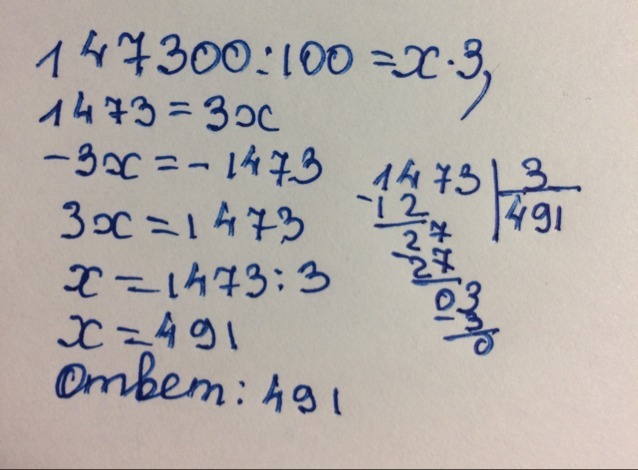 147300:100 = x·3,
1473 = 3x
-3x = -1473
3x = 1473
x = 1473:3
x = 491
Ответ: 491
1473 3
-12 491
27
-27
03
-3
0